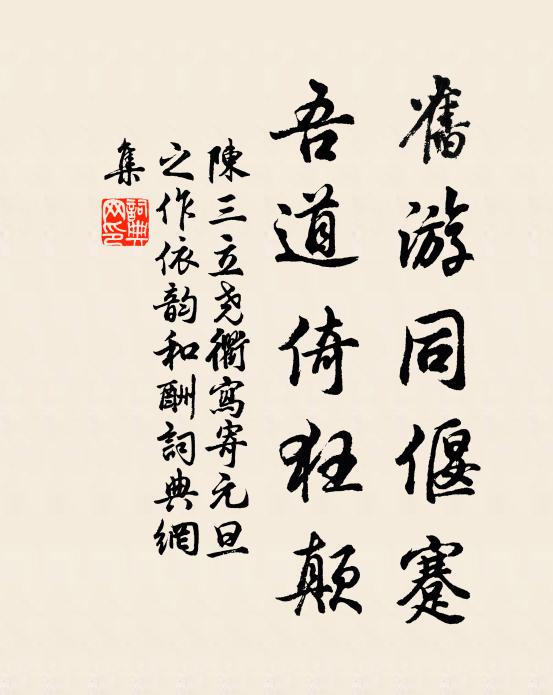 舊游同偃蹇
吾道倚狂顛
陳三立堯衢寫寄元旦
之作依韵和酬詞典網
集
詞典
网印